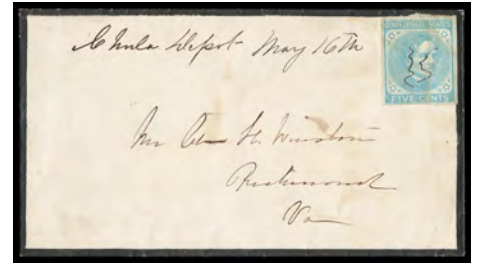 Chula Depot May 16th
CONFEDERATE STATES
FIVE CENTS
Mr H. Winston
Richmond
Va